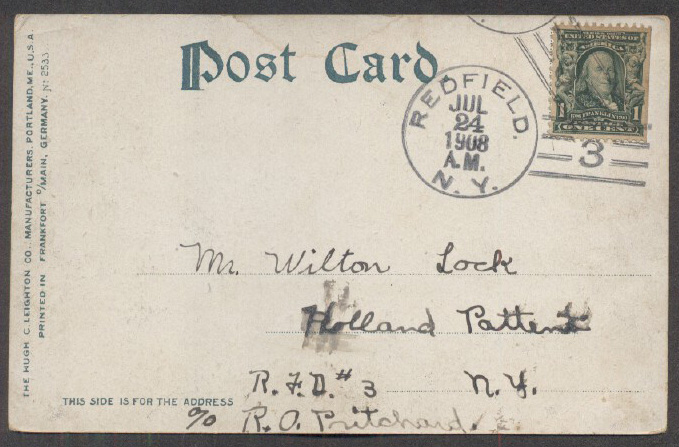 Post Card
REDFIELD.
JUL
24
1908
A.M.
N.Y.
SERIES 1902
UNITED STATES OF
AMERICA
1 1
BEN. FRANKLIN
POSTAGE
ONE CENT
3
Mr. Wilton Lock
Holland Pattent
R.F.D. #3 N.Y.
c/o R.O. Pritchard.
THIS SIDE IS FOR THE ADDRESS
THE HUGH C. LEIGHTON CO., MANUFACTURERS, PORTLAND, ME., U.S.A.
PRINTED IN FRANKFORT o/MAIN, GERMANY. No 2533